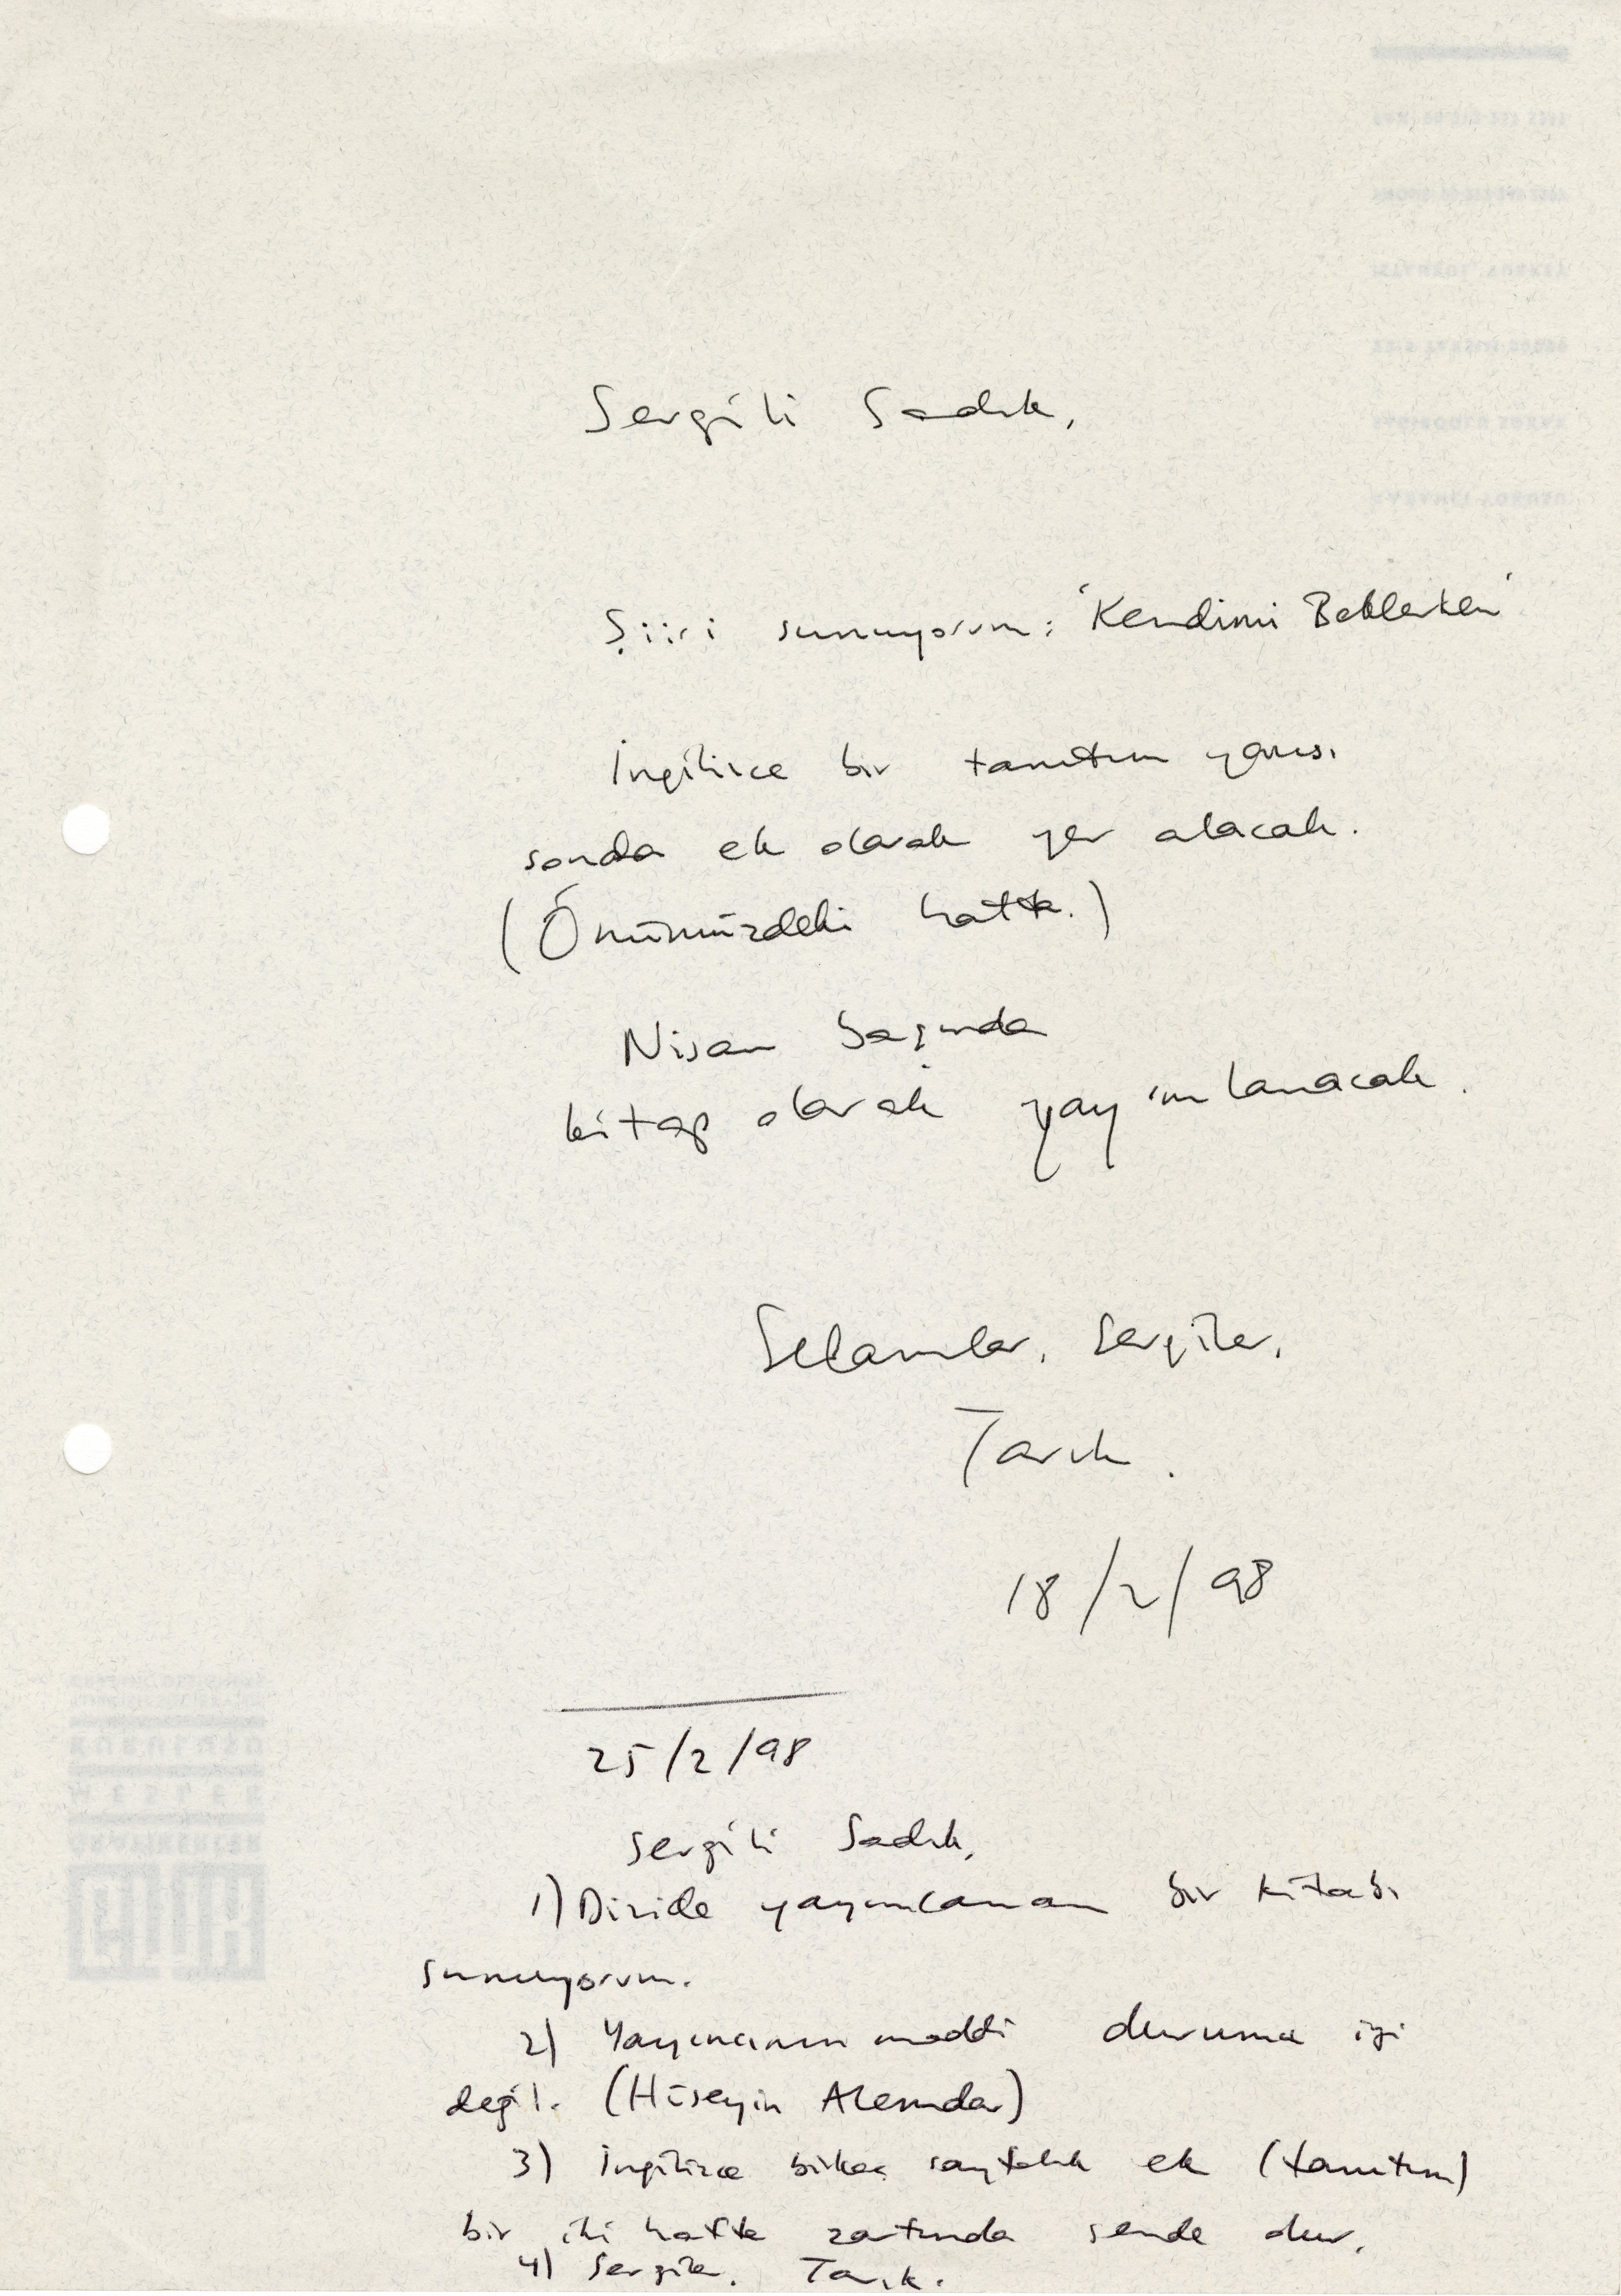 Sevgili Sadık,
Şiiri sunuyorum: 'Kendimi Beklerken'
İngilizce bir tanıtım yazısı
sonda ek olarak yer alacak.
(Önümüzdeki hafta.)
Nisan başında
kitap olarak yayımlanacak.
Selamlar, Sevgiler,
Tarık.
18/2/98
25/2/98
Sevgili Sadık,
1) Dizide yayımlanan bir kitabı
sunuyorum.
2) Yayıncının maddi durumu iyi
değil. (Hüseyin Alemdar)
3) İngilizce birkaç sayfalık ek (tanıtım)
bir iki hafta zarfında sende olur.
4) Sevgiler. Tarık.